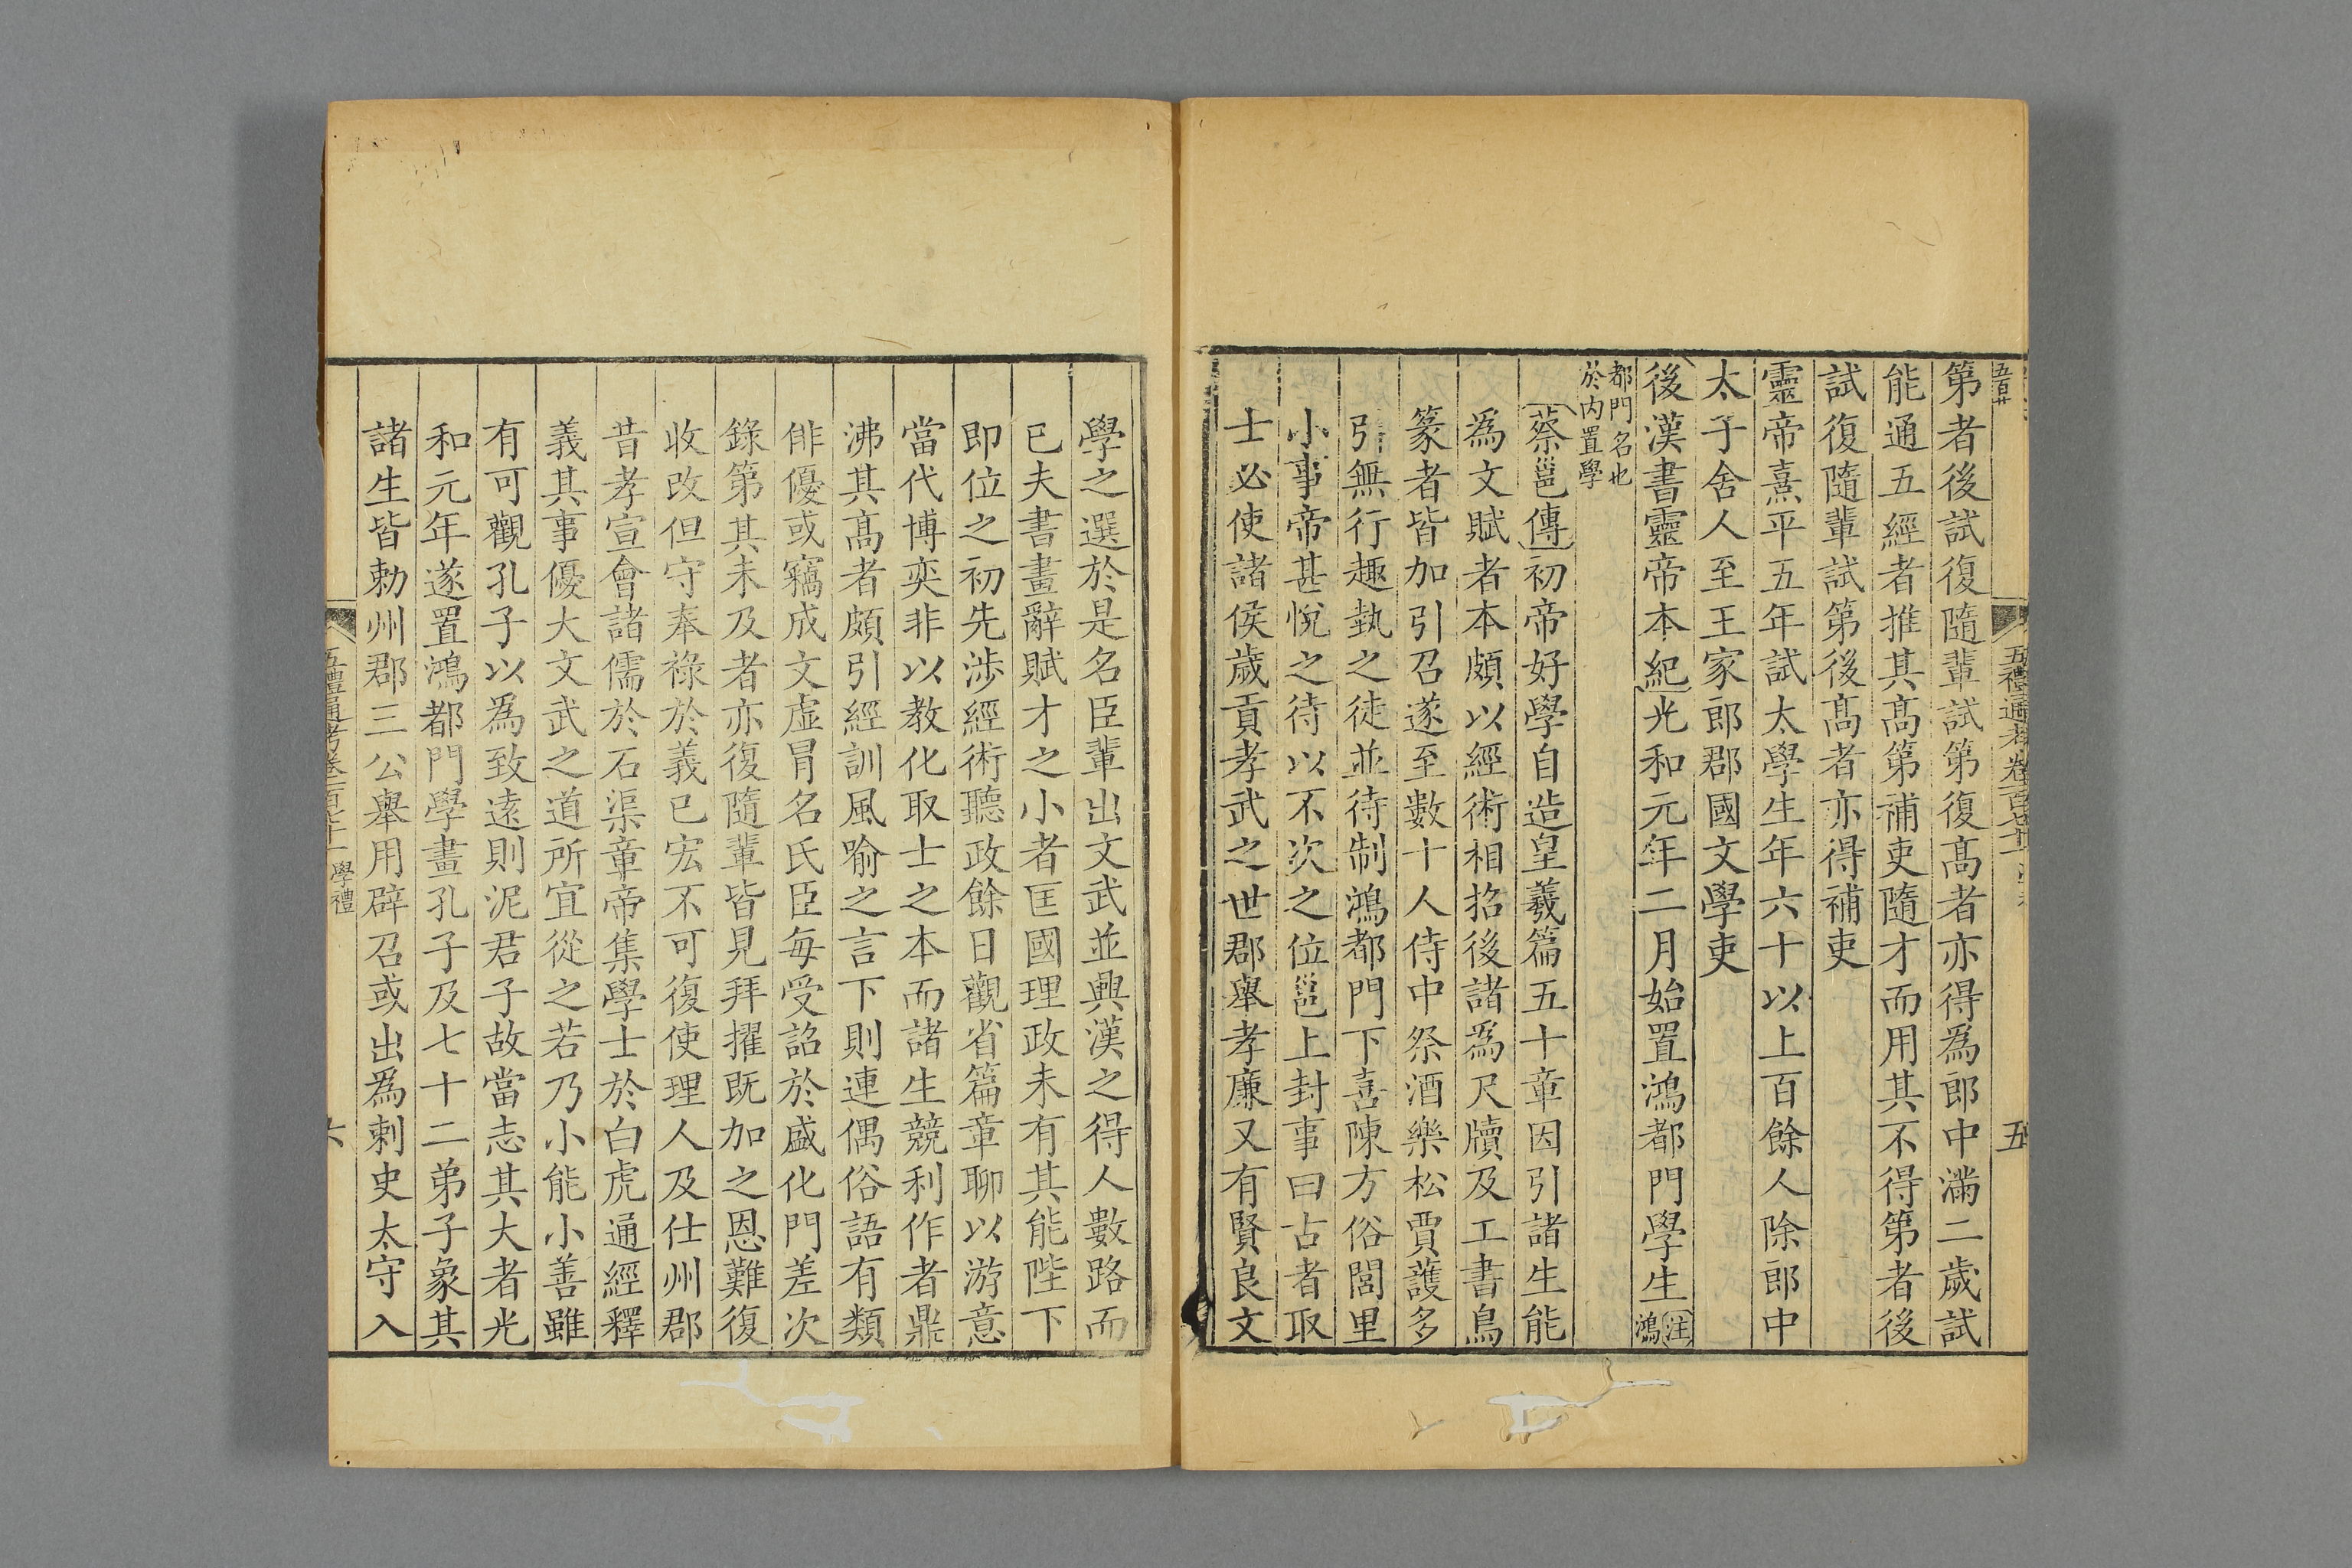 第者後試復隨輩試第復髙者亦得爲郎中滿二歲試
能通五經者推其髙第補吏隨才而用其不得第者後
試復隨輩試第後髙者亦得補吏
靈帝熹平五年試太學生年六十以上百餘人除郎中
太子舍人至王家郎郡國文學吏
後漢書靈帝本紀光和元年二月始置鴻都門學生注鴻
都門名也
於内置學
蔡邕傳初帝好學自造皇羲篇五十章因引諸生能
爲文賦者本頗以經術相招後諸爲尺牘及工書鳥
篆者皆加引召遂至數十人侍中祭酒樂松賈護多
引無行趣埶之徒並待制鴻都門下憙陳方俗閭里
小事帝甚悅之待以不次之位邕上封事曰古者取
士必使諸侯歲貢孝武之世郡舉孝廉又有賢良文
學之選於是名臣輩出文武並興漢之得人數路而
已夫書畫辭賦才之小者匡國理政未有其能陛下
即位之初先涉經術聽政餘日觀省篇章聊以游意
當代博奕非以教化取士之本而諸生競利作者鼎
沸其髙者頗引經訓風喻之言下則連偶俗語有類
俳優或竊成文虛冒名氏臣每受詔於盛化門差次
錄第其未及者亦復隨輩皆見拜擢既加之恩難復
收改但守奉祿於義已宏不可復使理人及仕州郡
昔孝宣會諸儒於石渠章帝集學士於白虎通經釋
義其事優大文武之道所宜從之若乃小能小善雖
有可觀孔子以爲致遠則泥君子故當志其大者光
和元年遂置鴻都門學畫孔子及七十二弟子象其
諸生皆勅州郡三公舉用辟召或出爲刺史太守入
五禮通考卷
五
學禮
六